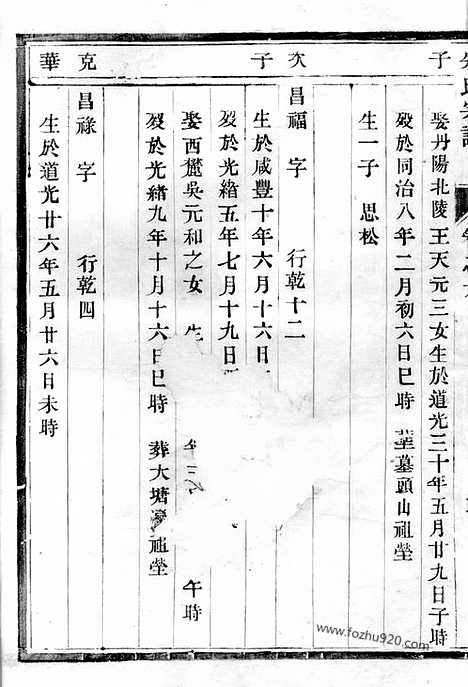 子
娶丹陽北陵王天元三女生於道光三十年五月廿九日子時
歿於同治八年二月初六日巳時 葬墓頭山祖塋
生一子 思松
次子
昌福字 行乾十二
生於咸豐十年六月十六日
歿於光緒五年七月十九日
娶西麓吳元和之女 生 年三 午時
歿於光緒九年十月十六日巳時 葬大塘 祖塋
克華
昌祿字 行乾四
生於道光廿六年五月廿六日未時
www.fozhu920.com